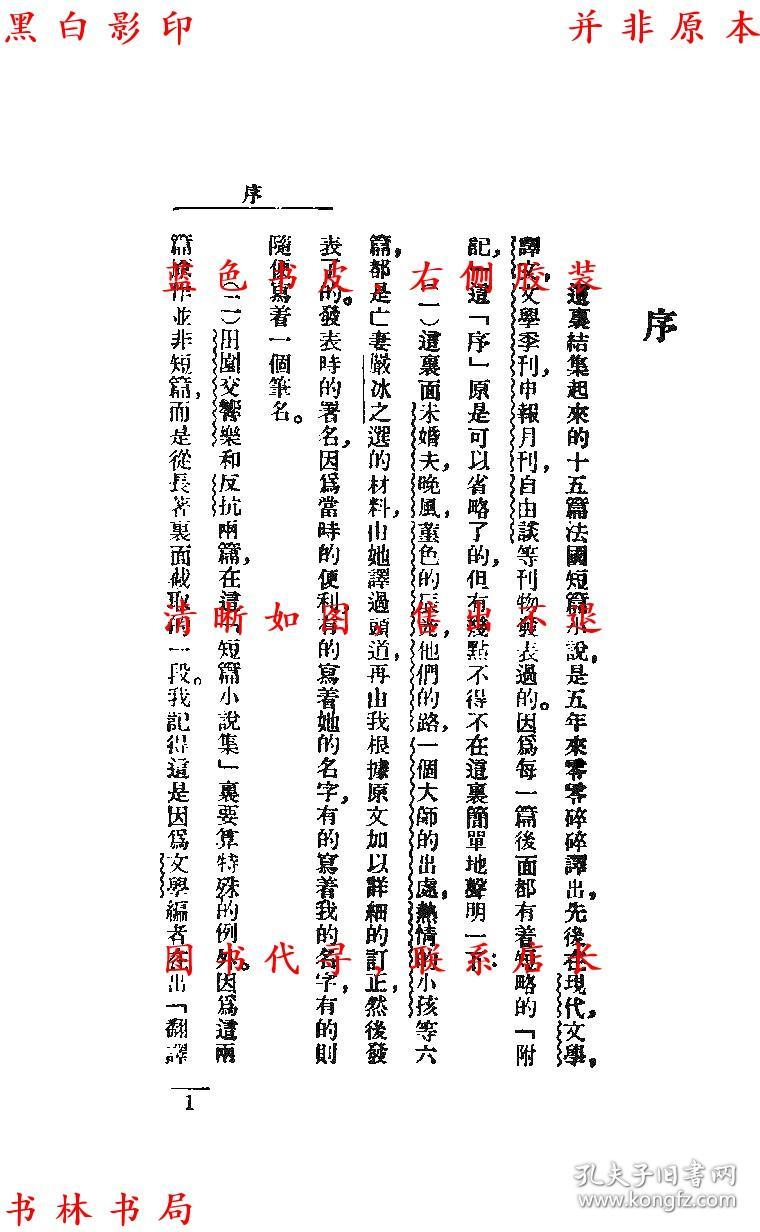 黑白影印
并非原本
序
序
這裏結集起來的十五篇法國短篇小說，是五年來零零碎碎譯出，先後在現代，文學，
譯文，文學季刊，申報月刊，自由談等刊物發表過的。因爲每一篇後面都有着短略的「附
記，」這「序」原是可以省略了的，但有幾點不得不在這裏簡單地聲明一下：
（一）這裏面未婚夫，晚風，菫色的辰光，他們的路，一個大師的出處，熱情的小孩等六
篇，都是亡妻嚴冰之選的材料，由她譯過頭道，再由我根據原文加以詳細的訂正，然後發
表了的。發表時的署名，因爲當時的便利，有的寫着她的名字，有的寫着我的名字，有的則
隨便寫着一個筆名。
（二）田園交響樂和反抗兩篇，在這「短篇小說集」裏要算特殊的例外。因爲這兩
篇原作並非短篇，而是從長著裏面截取的一段。我記得這是因爲文學編者在出「翻譯
1
蓝色书皮，右侧胶装
清晰如图，售出不退
图书代寻，联系店长
书林书局
孔夫子旧书网
www.kongfz.com